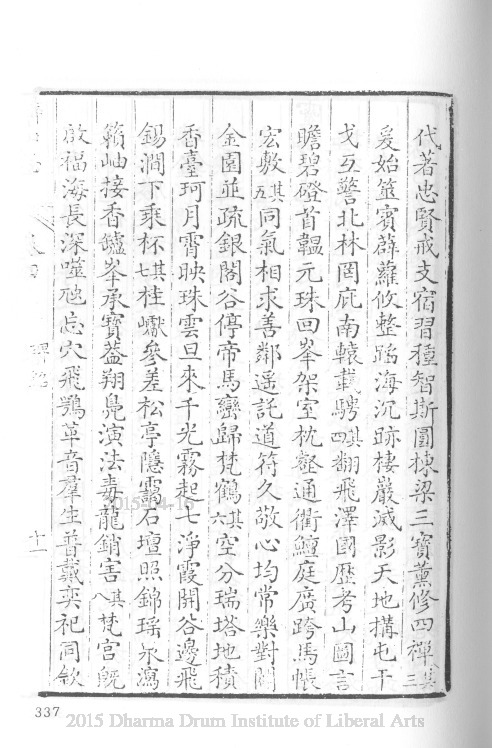 代著忠賢戒支宿習種智斯圓棟梁三寶薰修四禪其三
爰始筮賓薜蘿攸整蹈海沉跡棲巖滅影天地搆屯干
戈互警北林罔庇南轅載騁其四翻飛澤國歷考山圖言
瞻碧磴首韞元珠回峯架室枕壑通衢鱣庭廣跨馬帳
宏敷其五同氣相求善鄰遥託道符久敬心均常樂對闢
金園並疏銀閣谷停帝馬巒歸梵鶴其六空分瑞塔地積
香臺珂月霄映珠雲旦來千光霧起七淨霞開谷邊飛
錫澗下乘杯其七桂巘參差松亭隱靄石壇照錦瑶冰瀉
籟岫接香鑪峯承寶蓋翔鳧演法毒龍銷害其八梵宫旣
啟福海長深噬虺忘穴飛鴞革音羣生普戴奕祀同欽
卷四
碑銘
十一
2015-04-16
337
2015 Dharma Drum Institute of Liberal Arts